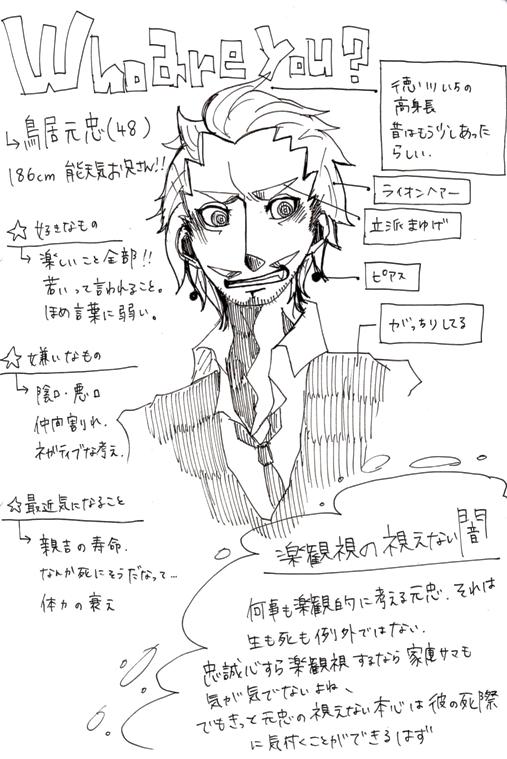 Who are you?
鳥居元忠(48)
186cm 能天気お兄さん!!
☆好きなもの
楽しいこと全部!!
若いって言われること。
ほめ言葉に弱い。
☆嫌いなもの
陰口・悪口
仲間割れ.
ネガティブな考え.
☆最近気になること
親吉の寿命.
なんか死にそうだなって…
体力の衰え
徳川いちの
高身長
昔はもう少しあった
らしい.
ライオンヘアー
立派まゆげ
ピアス
がっちりしてる
楽観視の視えない闇
何事も楽観的に考える元忠.それは
生も死も例外ではない.
忠誠心すら楽観視するなら家康サマも
気が気でないよね、
でもきっと元忠の視えない本心は彼の死際
に気付くことができるはず